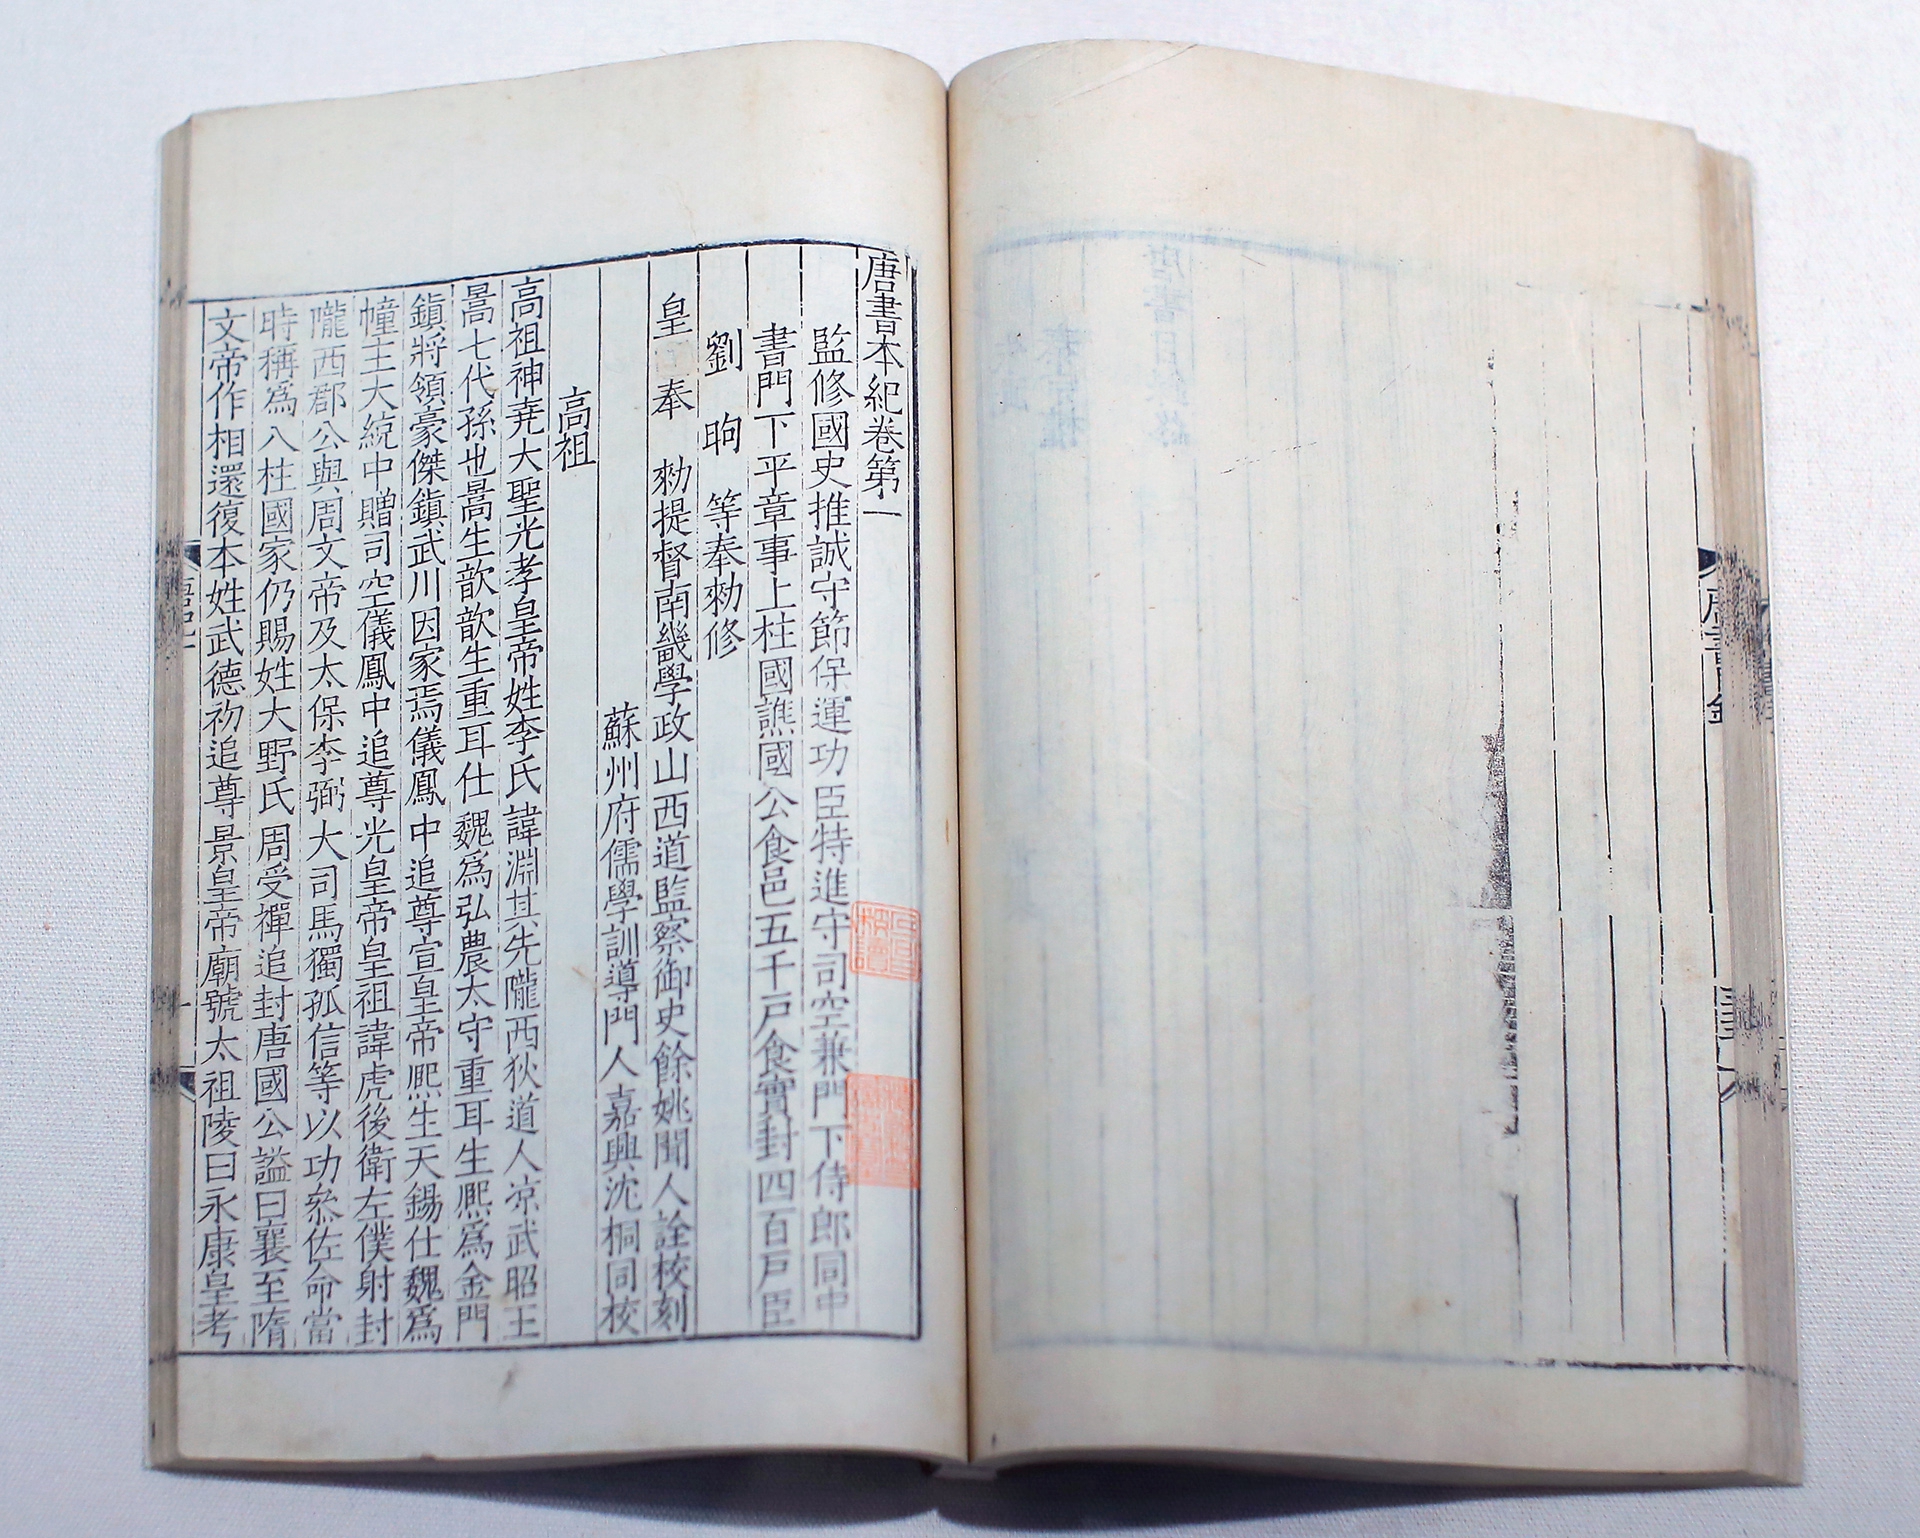 唐書本紀卷第一
監修國史推誠守節保運功臣特進守司空兼門下侍郎同中
書門下平章事上柱國譙國公食邑五千戶食實封四百戶臣
劉昫等奉勑修
皇 奉勑提督南畿學政山西道監察御史餘姚聞人詮校刻
蘇州府儒學訓導門人嘉興沈桐同校
高祖
高祖神堯大聖光孝皇帝姓李氏諱淵其先隴西狄道人涼武昭王
暠七代孫也暠生歆歆生重耳仕魏為弘農太守重耳生熈為金門
鎮將領豪傑鎮武川因家焉儀鳳中追尊宣皇帝熈生天錫仕魏為
幢主大統中贈司空儀鳳中追尊光皇帝皇祖諱虎後衛左僕射封
隴西郡公與周文帝及太保李弼大司馬獨孤信等以功叅佐命當
時稱為八柱國家仍賜姓大野氏周受禪追封唐國公謚曰襄至隋
文帝作相還復本姓武德初追尊景皇帝廟號太祖陵曰永康皇考
唐書目錄